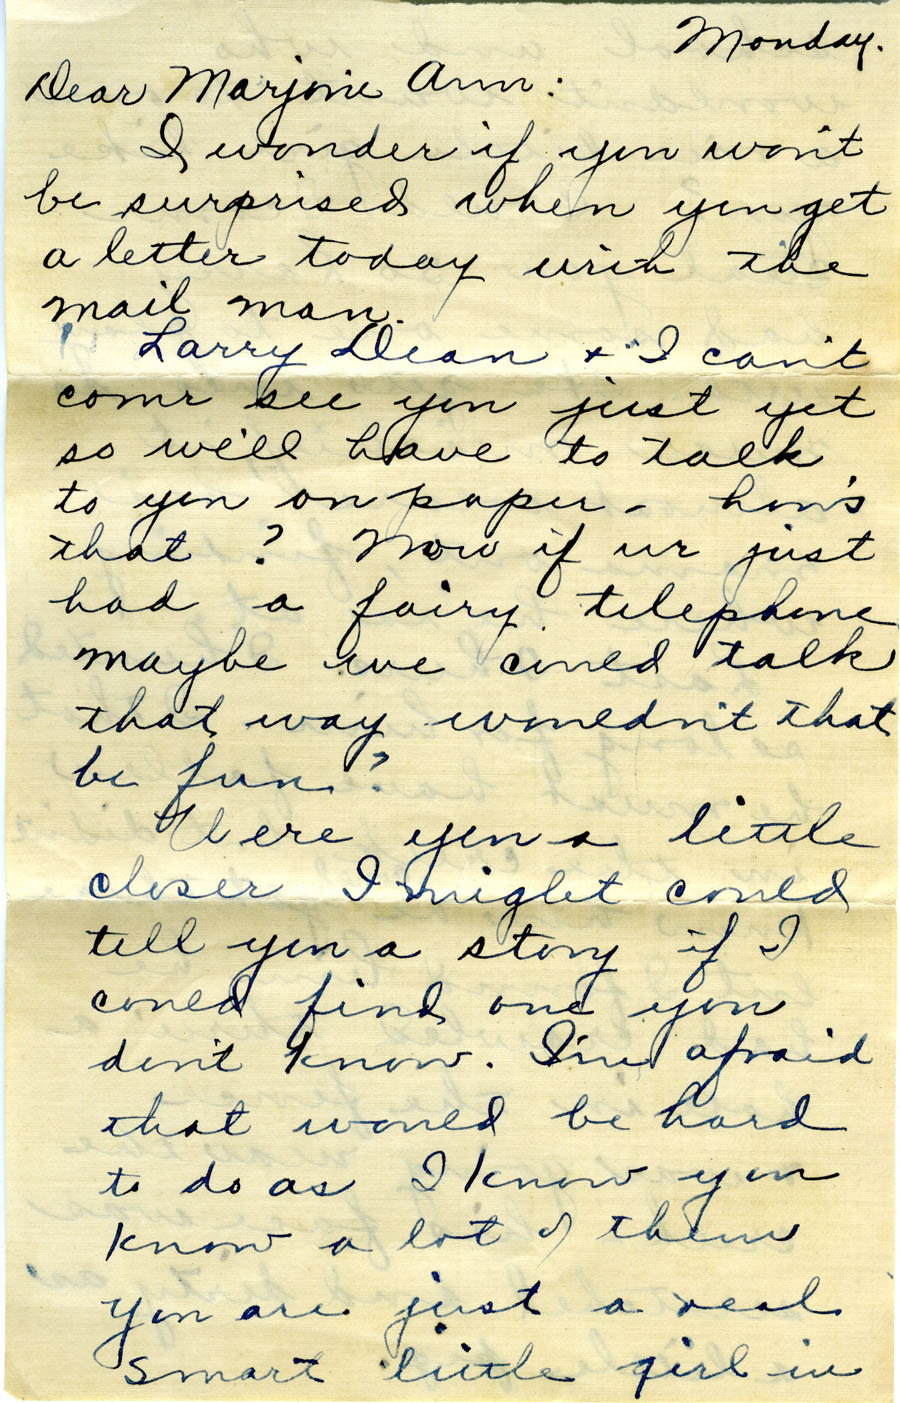 Monday.
Dear Marjorie Ann:
I wonder if you won't
be surprised when you get
a letter today with the
mail man.
Larry Dean + I can't
come see you just yet
so we'll have to talk
to you on paper - how's
that? Now if we just
had a fairy telephone
maybe we could talk
that way wouldn't that
be fun?
Were you a little
closer I might could
tell you a story if I
could find one you
don't know. I'm afraid
that would be hard
to do as I know you
know a lot of them
you are just a real
smart little girl in